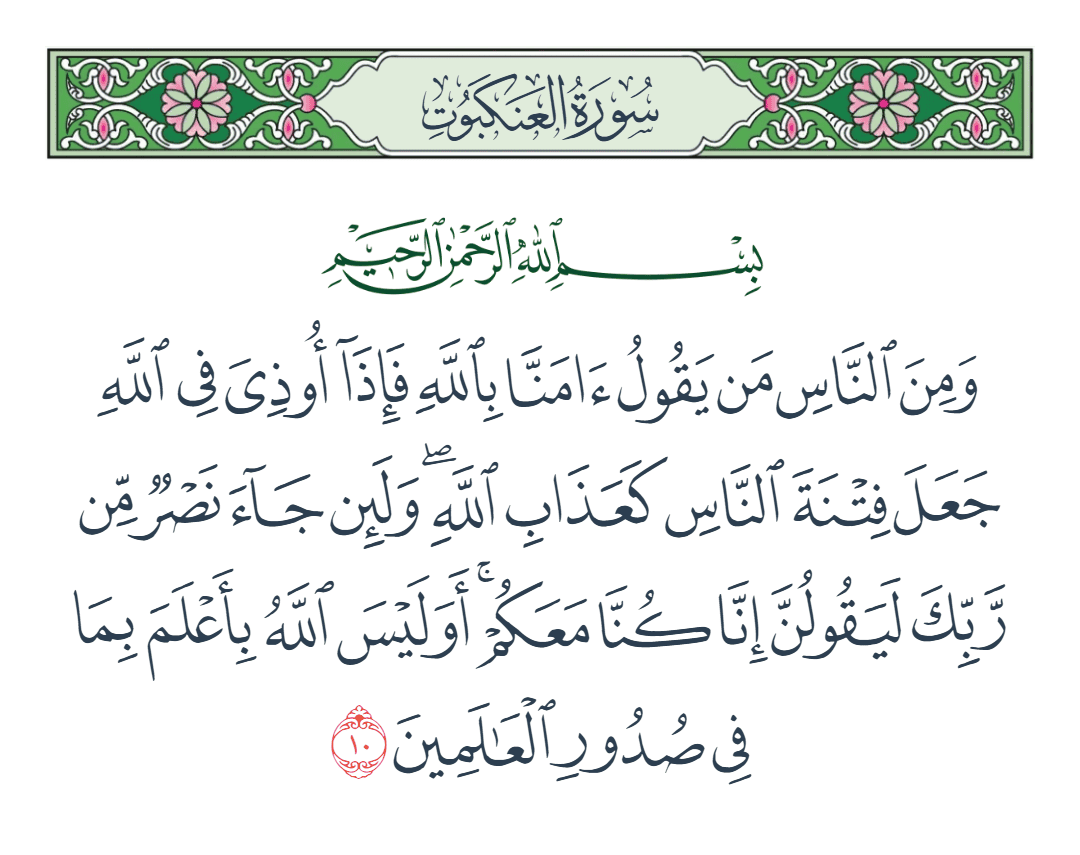 سُورَةُ العَنكَبُوتِ
بِسْمِ ٱللَّهِ ٱلرَّحْمَٰنِ ٱلرَّحِيمِ
وَمِنَ ٱلنَّاسِ مَن يَقُولُ ءَامَنَّا بِٱللَّهِ فَإِذَآ أُوذِىَ فِى ٱللَّهِ
جَعَلَ فِتْنَةَ ٱلنَّاسِ كَعَذَابِ ٱللَّهِ ۖ وَلَئِن جَآءَ نَصْرٌ مِّن
رَّبِّكَ لَيَقُولُنَّ إِنَّا كُنَّا مَعَكُمْ ۚ أَوَلَيْسَ ٱللَّهُ بِأَعْلَمَ بِمَا
فِى صُدُورِ ٱلْعَٰلَمِينَ ١٠